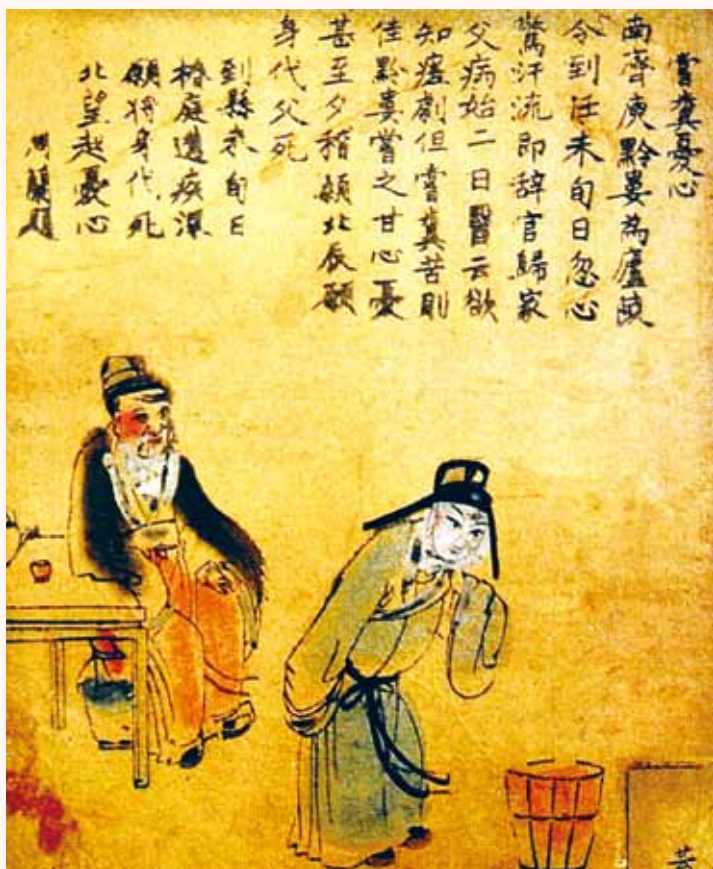 嘗糞憂心
南齊庾黔婁為廬陵
令到任未旬日忽心
驚汗流即辞官歸家
父病始二日醫云欲
知瘥劇但嘗糞苦則
佳黔婁嘗之甘心憂
甚至夕稽顙北辰願
身代父死
到縣未旬日
椿庭遺疾深
願將身代死
北望起憂心